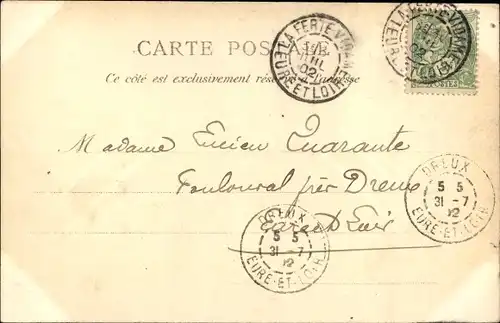 CARTE POSTALE
Ce côté est exclusivement réservé à l'adresse
LA FERTE VIDAME
JUIL
02
EURE-ET-LOIR
LA FERTE VIDAME
02
POSTES
Madame Lucien Quarante
près Dreux
Eure et Loir
DREUX
5 5
31 -7
12
EURE-ET-LOIR
DREUX
5 5
31 -7
12
EURE-ET-LOIR